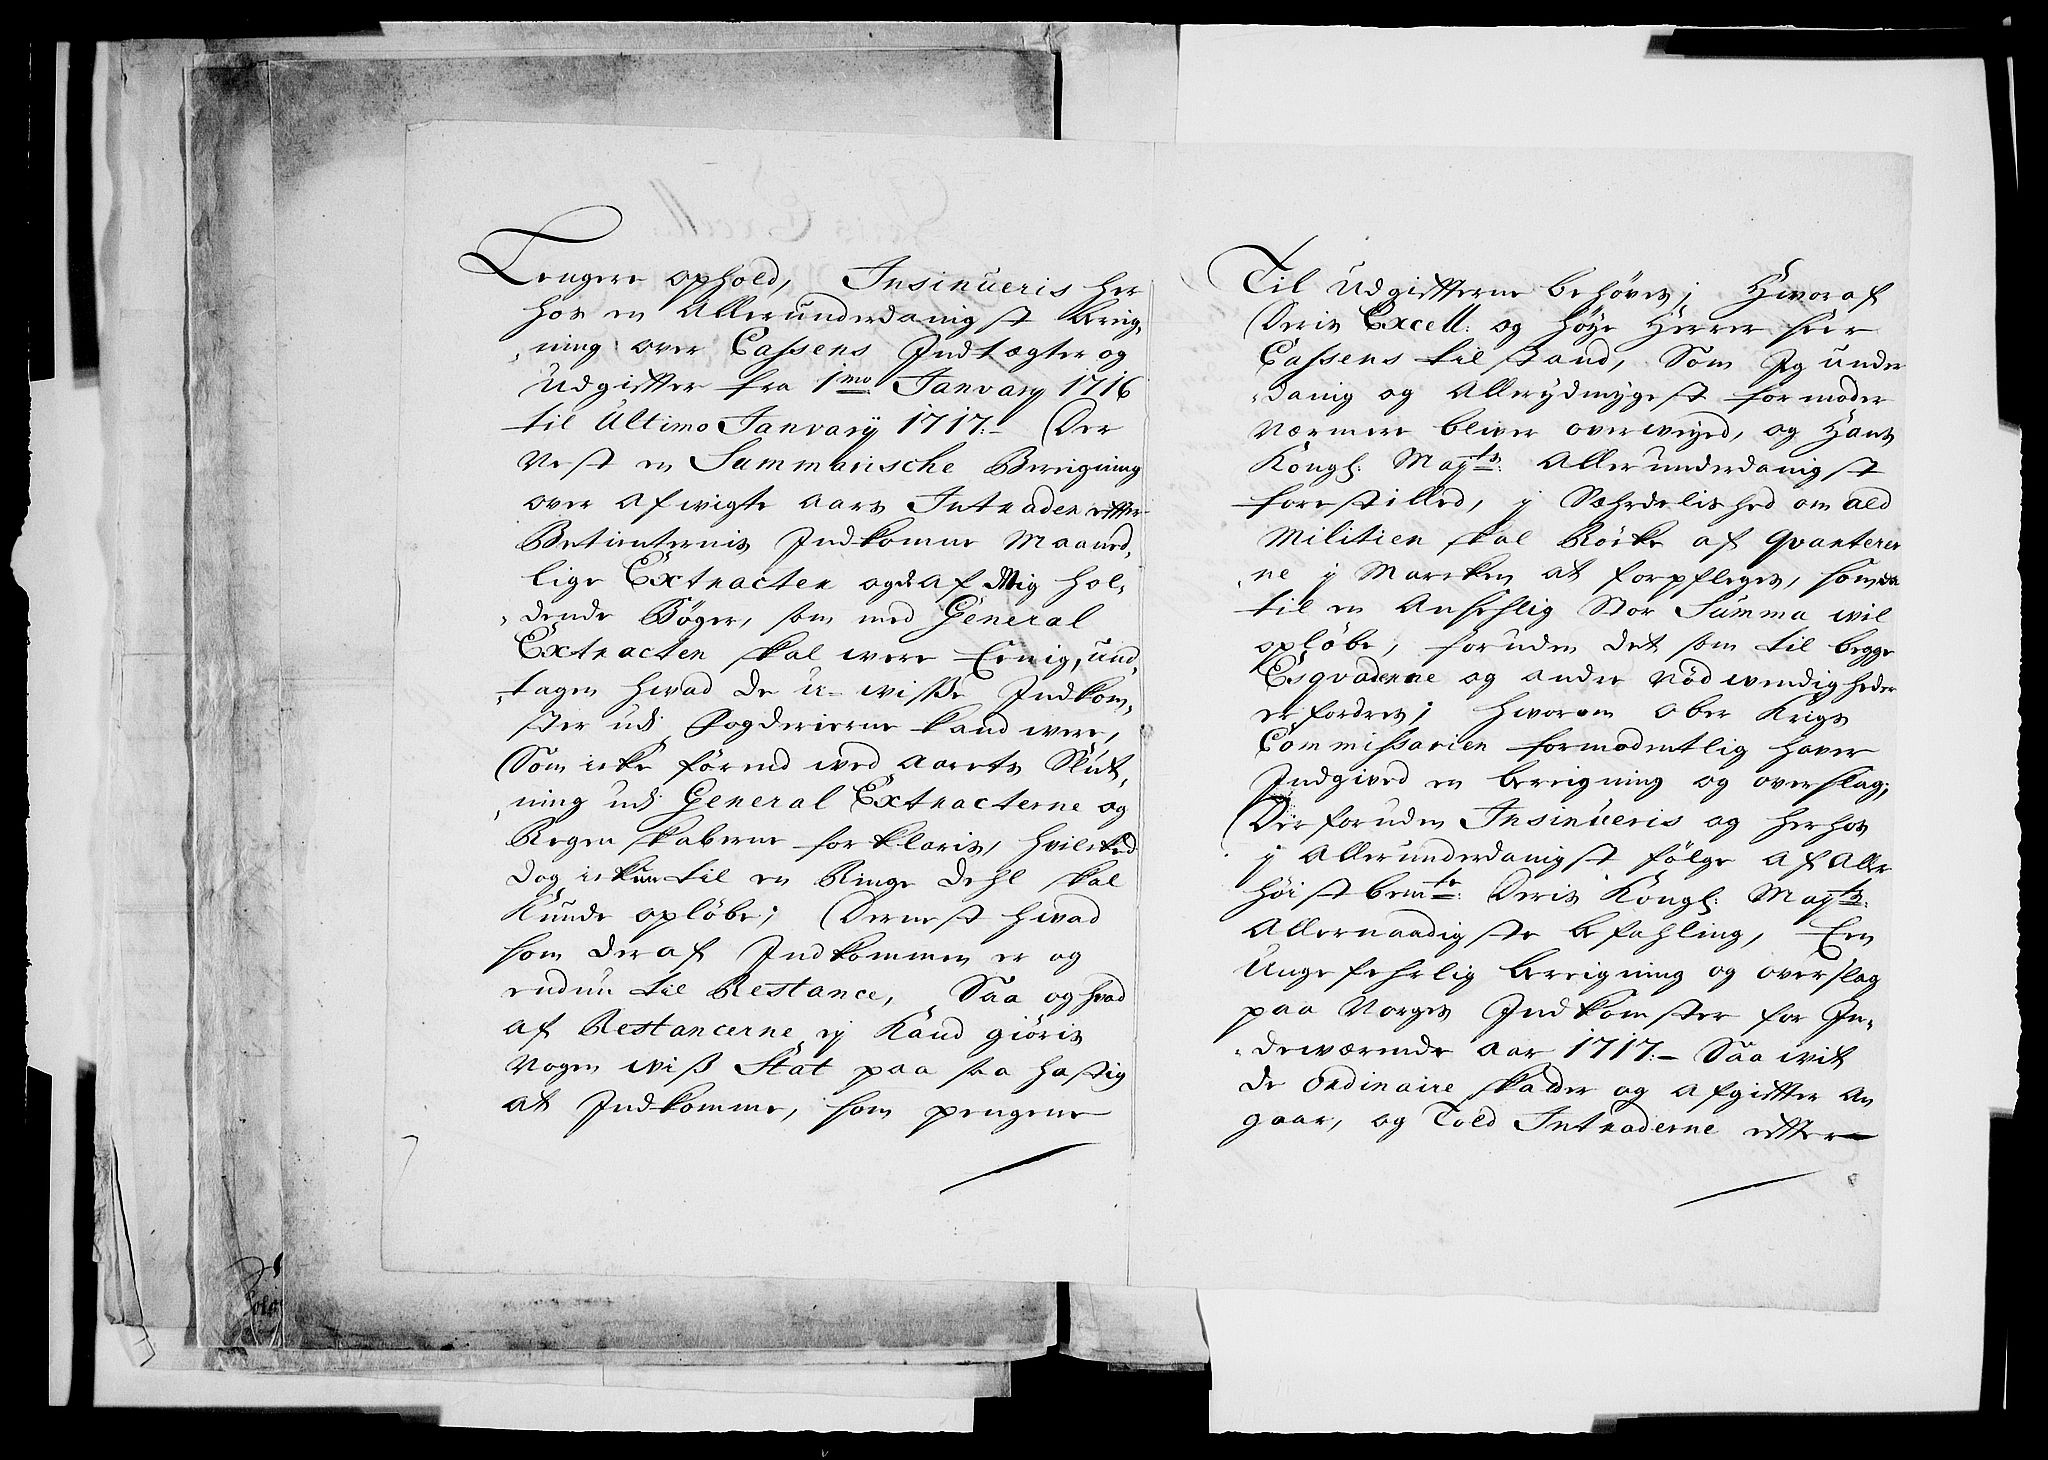 Lengere ophold, Insinueris her
hos en Allerunderdanigst bereig,
,ning over Cassens Indtægter og
Udgiftter fra 1mo Janvary 1716
til Ultimo Janvarij 1717:- Der
nest en Summarische Bereigning
over afvigte aars Intrader efter
Betienternis Indkomne Maaned,
lige Extracter og de af Mig hol,
,dende Bøger, som med General
Extracten skal were Eenig, und,
,tagen hvad de u-wisse Indkom,
ster udj Fogderierne kand were,
Som icke førend wed aarets Slut,
,ning udj General Extracterne og
Regenskaberne forklaris, hvilcked
dog ickun til en Ringe dehl skal
Kunde opløbe; Dernest hvad
som deraf Indkommen er og
endnu til Restance, Saa og hvad
af Restancerne ey Kand giøris
Nogen wiss Stat paa saa hastig
at Indkomme, som pengene
Til Udgiftterne behøves; Hvoraf
Deris Excell: og høye Herrer seer
Cassens tilstand, Som Jeg under
,danig og Allerydmygest formoder
nærmere bliver overweyed, og Hans
Kongl: Mayts: Allerunderdanigst
forestilled, j Sæhrdelished om ald
Militien skal Røcke af Qvarterer
,ne j Marcken at forpfleges, som da
til en Ansehlig Stor Summa wil
opløbe, foruden det som til begge
Esqvaderne og andre nødwendigheder
erfordres; hvorom Ober Krigs
Commissarien formodentlig haver
Indgived en bereigning og overslag;
Der foruden Insinueris og herhos
j Allerunderdanigst følge af Aller
høistbemte: Deris Kongl: Mayts:
Allernaadigste befahling, Een
Ungefehrlig bereigning og overslag
paa Norges Indkomster for In,
,deværende aar 1717:- Saa wit
de Ordinaire skatter og afgiftter an
gaar, og Told Intraderne efter